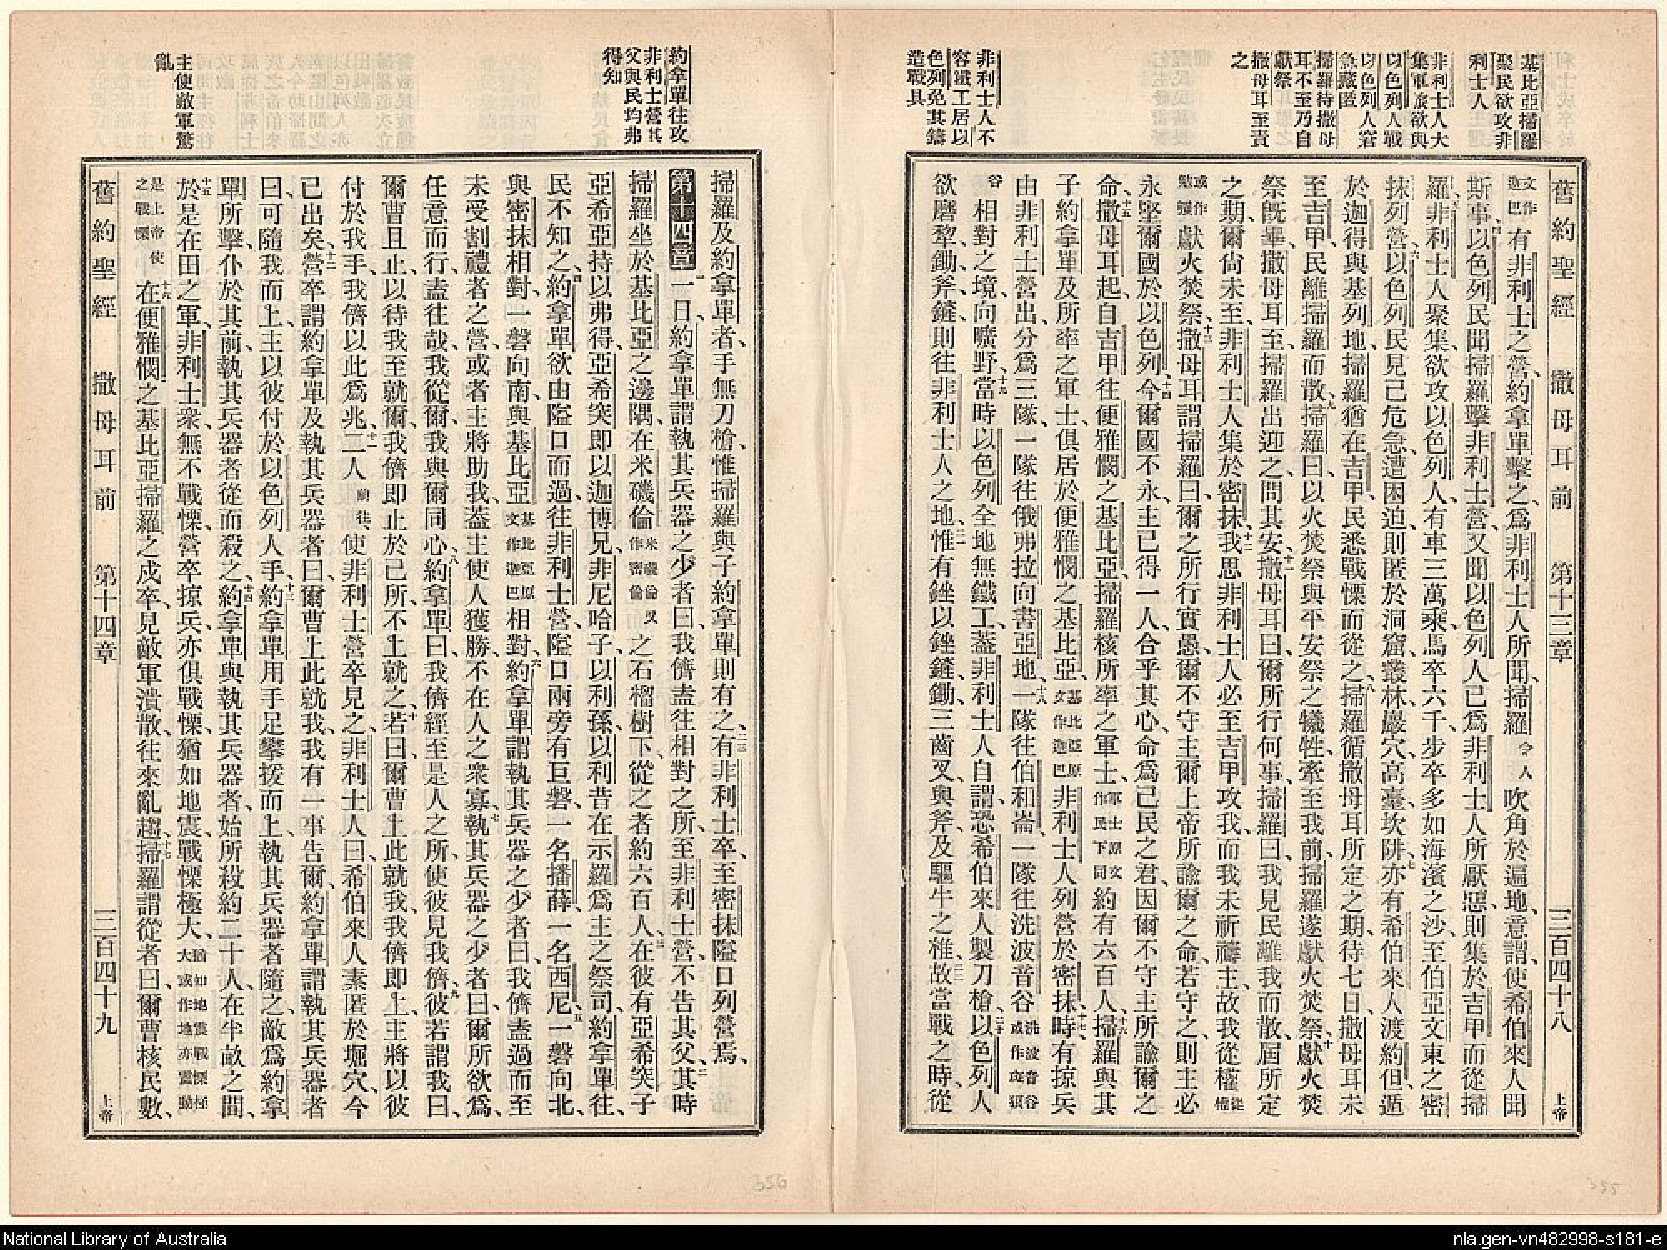 基比亞掃羅
聚民欲攻非
利士人
非利士人大
集軍旅欲與
以色列人戰
以色列人窘
急藏匿
掃羅待撒母
耳不至乃自
獻祭
撒母耳至責
之
非利士人不
容鐵工居以
色列免其鑄
造戰具
舊約聖經 撒母耳前 第十三章 三百四十八 上帝
文作迦巴有非利士之營、約拿單擊之、爲非利士人所聞、掃羅令人吹角於遍地、意謂、使希伯來人聞
斯事、以色列民聞掃羅擊非利士營、又聞以色列人已爲非利士人所厭惡、則集於吉甲而從掃
羅、非利士人聚集、欲攻以色列人、有車三萬乘、馬卒六千、步卒多如海濱之沙、至伯亞文東之密
抹列營、以色列民見己危急、遭困迫、則匿於洞窟、叢林、巖穴、高臺、坎阱、亦有希伯來人渡約但、遁
於迦得與基列地、掃羅猶在吉甲、民悉戰慄而從之、掃羅循撒母耳所定之期、待七日、撒母耳未
至吉甲、民離掃羅而散、掃羅曰、以火焚祭與平安祭之犧牲、牽至我前、掃羅遂獻火焚祭、獻火焚
祭旣畢、撒母耳至、掃羅出迎之、問其安、撒母耳曰、爾所行何事、掃羅曰、我見民離我而散、屆所定
之期、爾尙未至、非利士人集於密抹、我思非利士人必至吉甲攻我、而我未祈禱主、故我從權從權或作勉強
獻火焚祭、撒母耳謂掃羅曰、爾之所行實愚、爾不守主爾上帝所諭爾之命、若守之、則主必
永堅爾國於以色列、今爾國不永、主已得一人合乎其心、命爲己民之君、因爾不守主所諭爾之
命、撒母耳起、自吉甲往便雅憫之基比亞、掃羅核所率之軍士軍士原文作民下同約有六百人、掃羅與其
子約拿單、及所率之軍士、俱居於便雅憫之基比亞、基比亞原文作迦巴非利士人列營於密抹、時有掠兵
由非利士營出、分爲三隊、一隊往俄弗拉向書亞地、一隊往伯和崙、一隊往洗波音谷洗波音谷或作立頓谷
相對之境、向曠野、當時以色列全地無鐵工、蓋非利士人自謂、恐希伯來人製刀槍、以色列人
欲磨犂、鋤、斧、鏟、則往非利士人之地、惟有銼、以銼鏟、鋤、三齒叉、與斧、及驅牛之椎、故當戰之時、從
約拿單往攻
非利士營其
父與民均弗
得知
主使敵軍驚
亂
掃羅及約拿單者、手無刀槍、惟掃羅與子約拿單則有之、有非利士卒、至密抹隘口列營焉、
第十四章 一日、約拿單謂執其兵器之少者曰、我儕盍往相對之所、至非利士營、不告其父、其時
掃羅坐於基比亞之邊隅、在米磯倫米磯倫又作密倫之石榴樹下、從之者約六百人、在彼有亞希突子
亞希亞、持以弗得、亞希突卽以迦博兄、非尼哈子、以利孫、以利昔在示羅爲主之祭司、約拿單往、
民不知之、約拿單欲由隘口而過、往非利士營、隘口兩旁有巨磐、一名播薛、一名西尼、一磐向北、
與密抹相對、一磐向南、與基比亞基比亞原文作迦巴相對、約拿單謂執其兵器之少者曰、我儕盍過而至
未受割禮者之營、或者主將助我、蓋主使人獲勝、不在人之衆寡、執其兵器之少者曰、爾所欲爲、
任意而行、盍往哉、我從爾、我與爾同心、約拿單曰、我儕經至是人之所、使彼見我儕、彼若謂我曰、
爾曹且止、以待我至就爾、我儕卽止於己所、不上就之、若曰、爾曹上此就我、我儕卽上、主將以彼
付於我手、我儕以此爲兆、二人顯其使非利士營卒見之、非利士人曰、希伯來人素匿於堀穴、今
已出矣、營卒謂約拿單及執其兵器者曰、爾曹上此就我、我有一事告爾、約拿單謂執其兵器者
曰、可隨我而上、主以彼付於以色列人手、約拿單用手足攀援而上、執其兵器者隨之、敵爲約拿
單所擊、仆於其前、執其兵器者從而殺之、約拿單與執其兵器者、始所殺約二十人、在半畝之間、
於是在田之軍、非利士衆、無不戰慄、營卒掠兵亦俱戰慄、猶如地震、戰慄極大、猶如地震戰慄極大或作地亦震動
是上帝使之戰慄在便雅憫之基比亞、掃羅之戍卒、見敵軍潰散、往來亂趨、掃羅謂從者曰、爾曹核民數、
舊約聖經 撒母耳前 第十四章 三百四十九 上帝
356
355
National Library of Australia
nla.gen-vn482998-s181-e